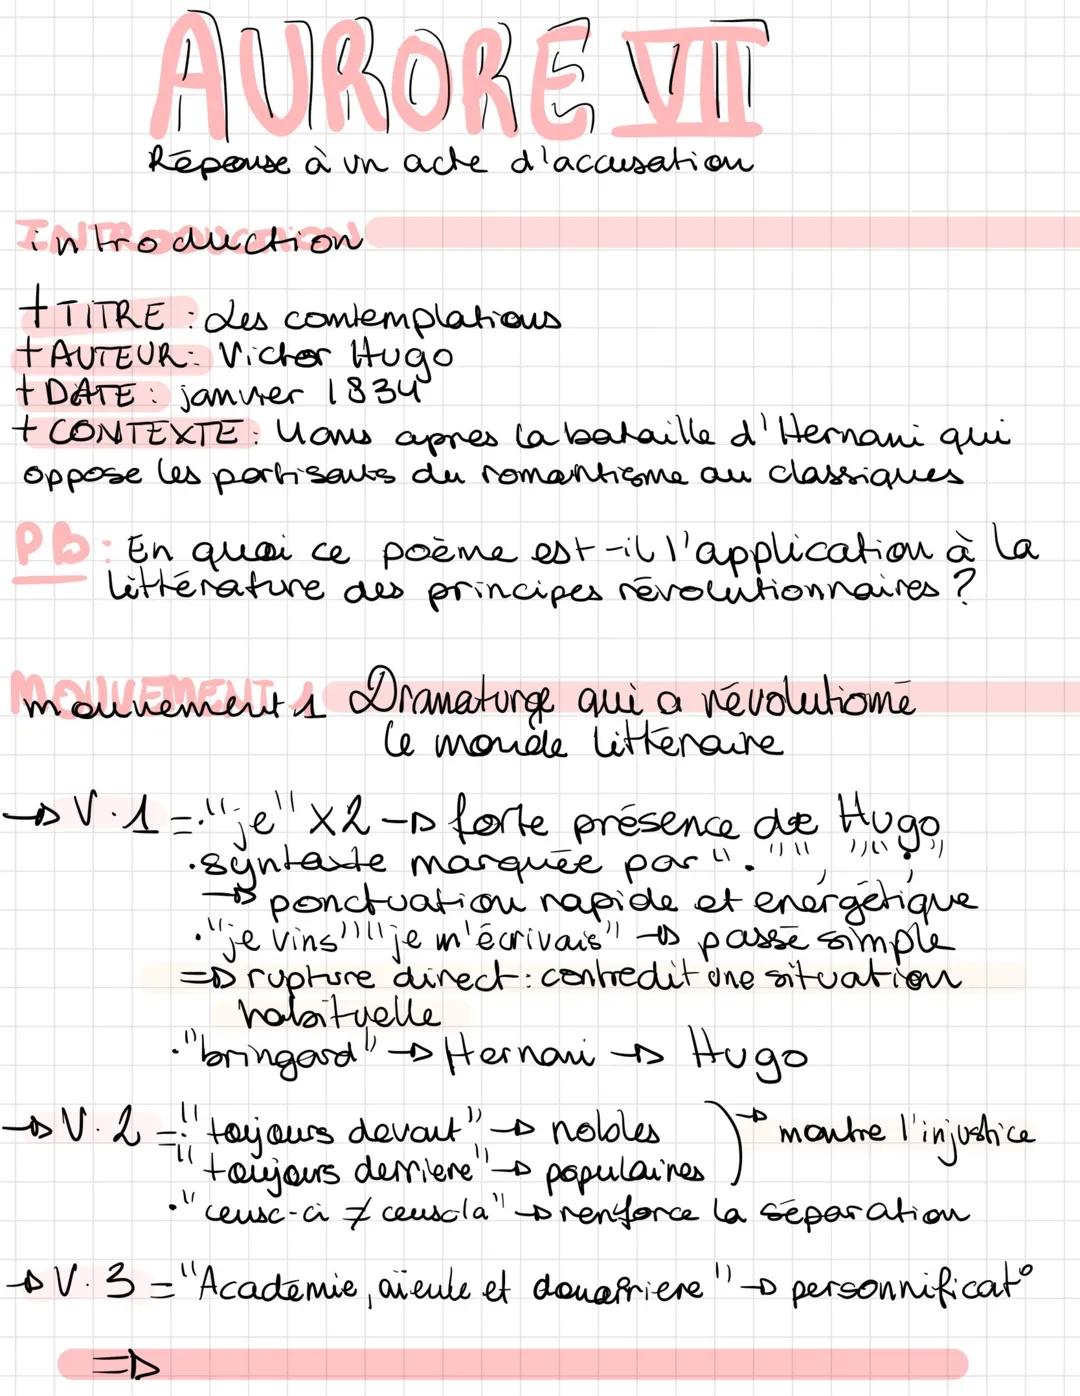 AURORE VII
Réponse à un acte d'accusation
INTRODUCTION
introduction
+ TITRE : Les contemplations
+ AUTEUR : Victor Hugo
+ DATE : janvier 1834
+ CONTEXTE : 4 ans apres la bataille d'Hernani qui
oppose les partisants du romantisme au classiques
PB : En quoi ce poème est-il l'application à la
littérature des principes révolutionnaires ?
MOUVEMENT 1
mouvement 1 Dramaturge qui a révolutionné
le monde littéraire
→ V.1 = · "je" x2 → forte présence de Hugo
· syntaxte marquée par "." "," ";"
→ ponctuation rapide et énergétique
· "je vins" "je m'écrivais" → passé simple
⇒ rupture direct : contredit une situation
habituelle
· "bringard" → Hernani → Hugo
→ V.2 = · "toujours devant" → nobles → montre l'injustice
"toujours derriere" → populaires
· "ceusc-ci ≠ ceuscla" → renforce la séparation
→ V.3 = "Academie, aïeule et douairiere" → personnificat°
⇒